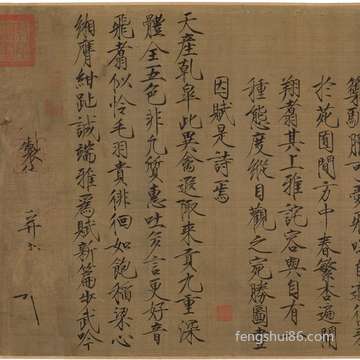 馴服可愛飛鳴自適往來
於苑囿間方中春繁杏遍開
翔翥其上雅詫容與自有一
種態度縱目觀之宛勝圖畫
因賦是詩焉
天產乾皋此異禽遐陬來貢九重深
體全五色非凡質惠吐多言更好音
飛翥似憐毛羽貴徘徊如飽稻粱心
緗膺紺趾誠端雅為賦新篇步武吟
製
并書
fengshui86.com